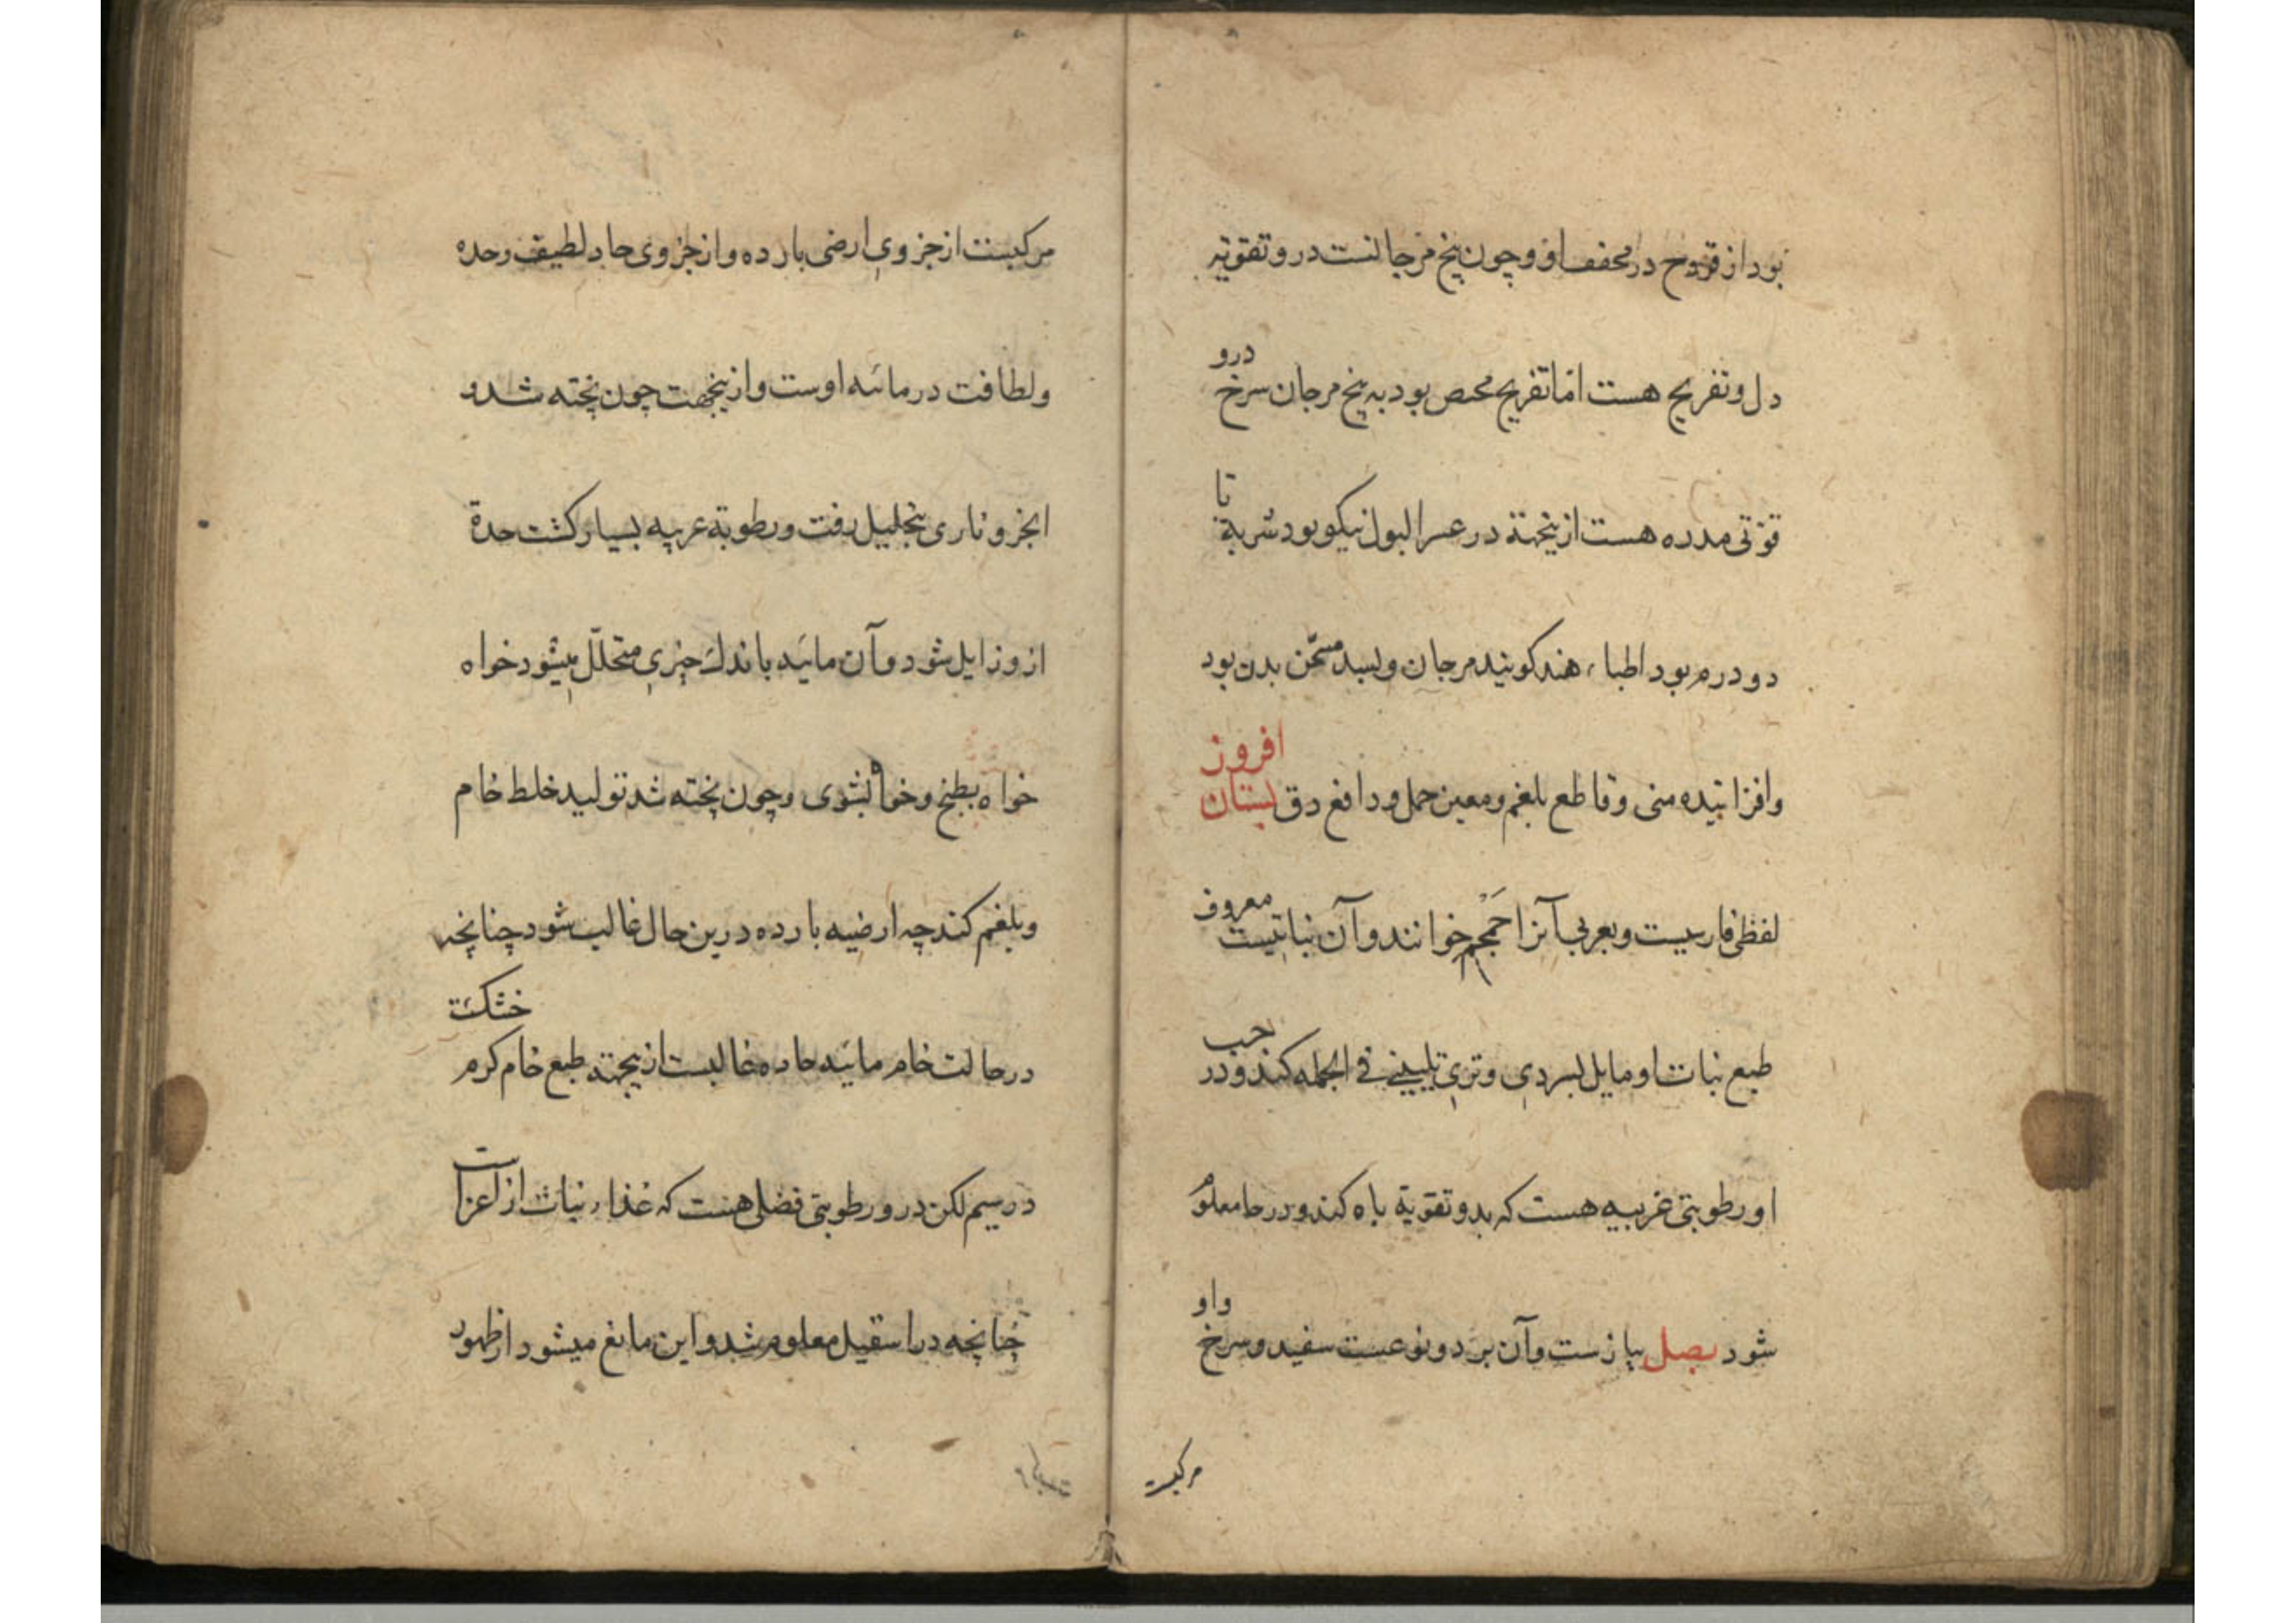 بود از قروح در مجففها و چون بیخ مرجانست درو تقویة
دل و تفریح هست اما تفریح مخصص بود به بیخ مرجان سرخ درو
قوتی مدره هست ازینجهة در عسر البول نیکو بود شربة تا
دو درم بود اطباء هند کویند مرجان ولسبد مسخن بدن بود
وافزاینده منی وقاطع بلغم ومعین حمل ودافع دق بستان افروز
لفظی فارسیست وبعربی آنرا حمحم خوانند وآن نباتیست معروف
طبع نبات او مایل بسردی وتری تلیینی فی الجمله کند ودر حب
او رطوبتی غریبه هست که بدو تقویة باه کند ودر حا معلوم
شود بصل پیازست وآن بر دو نوعست سفید وسرخ واو
مرکبست
مرکبست از جزوی ارضی بارده واز جزوی حاد لطیف وحده
ولطافت در مائیه اوست وازینجهت چون پخته شد و
اجزو ناری بتحلیل رفت ورطوبة غریبه بسیار کشت حدة
ازو زایل شود وآن مائیه باندک چیزی متحلل میشود خواه
خواه بطبخ وخواه بشوی وچون پخته شد تولید خلط خام
وبلغم کند چه ارضیه بارده درین حال غالب شود چنانچه
در حالت خام مائیه حاده غالبست ازینجهة طبع خام کرم خشکست
در سیم لکن درو رطوبتی فضلی هست که غذاء نبات از آنست
چنانچه در اسقیل معلوم شد واین مانع میشود از ظهور